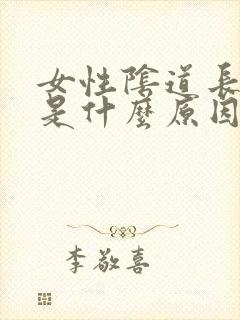 女性陰道長
是什麼原因
李敬喜